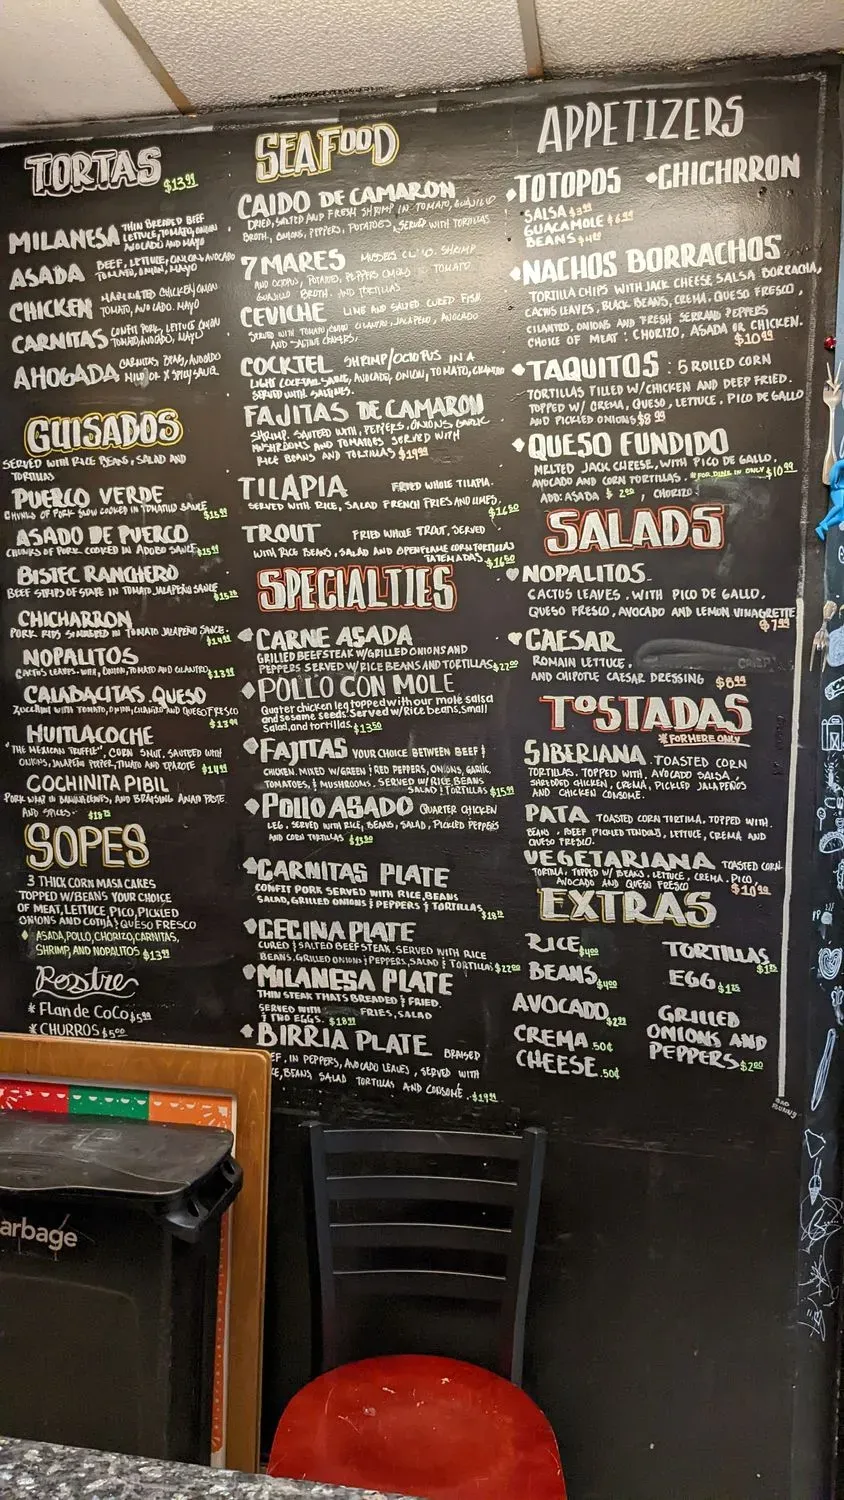 TORTAS $13.99
MILANESA THIN BREADED BEEF
LETTUCE, TOMATO, ONION
AVOCADO AND MAYO
ASADA BEEF, LETTUCE, ONION, AVOCADO
TOMATO, ONION, MAYO
CHICKEN MARINATED CHICKEN, ONION
TOMATO, AVOCADO, MAYO
CARNITAS CONFIT PORK, LETTUCE ONION
TOMATO, AVOCADO, MAYO
AHOGADA CARNITAS, BEANS, AVOCADO
MILD OR X SPICY SAUCE
GUISADOS
SERVED WITH RICE BEANS, SALAD AND
TORTILLAS
PUERCO VERDE
CHUNKS OF PORK SLOW COOKED IN TOMATILLO SAUCE
ASADO DE PUERCO
CHUNKS OF PORK COOKED IN ADOBO SAUCE
BISTEC RANCHERO
BEEF STRIPS OF STAPE IN TOMATO, JALAPEÑO SAUCE
CHICHARRON
PORK RIDS SIMMERED IN TOMATO JALAPEÑO SAUCE. $14.99
NOPALITOS
CACTUS LEAVES WITH, ONION, TOMATO AND CILANTRO $13.99
CALABACITAS QUESO
ZUCCHINI WITH TOMATO, ONION, CILANTRO AND QUESO FRESCO
$13.99
HUITLACOCHE
"THE MEXICAN TRUFFLE", CORN SMUT, SAUTEED WITH
ONIONS, JALAPEÑO PEPPER, TOMATO AND EPAZOTE $14.99
COCHINITA PIBIL
PORK WRAP IN BANANA LEAVES, AND BRAISING ANAO PASTE
AND SPICES.
SOPES
3 THICK CORN MASA CAKES
TOPPED W/BEANS YOUR CHOICE
OF MEAT, LETTUCE, PICO, PICKLED
ONIONS AND COTIJA & QUESO FRESCO
ASADA, POLLO, CHORIZO, CARNITAS,
SHRIMP, AND NOPALITOS $13.99
Postre
* Flan de CoCo $5.99
* CHURROS $5.00
SEAFOOD
CALDO DE CAMARON
DRIED, SALTED AND FRESH SHRIMP IN TOMATO, GUAJILLO
BROTH, ONIONS, PEPPERS, POTATOES, SERVED WITH TORTILLAS
7 MARES MUSSELS SHRIMP
AND OCTOPUS, POTATOES, PEPPERS ONIONS TOMATO
GUAJILLO BROTH. AND TORTILLAS
CEVICHE LIME AND SALTED CURED FISH
SERVED WITH TOMATO, ONION CILANTRO, JALAPEÑO, AVOCADO
AND SALTINE CRACKERS.
COCKTEL SHRIMP/OCTOPUS IN A
LIGHT COCKTAIL SAUCE, AVOCADO, ONION, TOMATO, CILANTRO
SERVED WITH SALTINES.
FAJITAS DE CAMARON
SHRIMP. SAUTEED WITH, PEPPERS, ONIONS, GARLIC
MUSHROOMS AND TOMATOES SERVED WITH
RICE BEANS AND TORTILLAS $19.99
TILAPIA FRIED WHOLE TILAPIA.
SERVED WITH RICE, SALAD FRENCH FRIES AND LIMES. $16.50
TROUT FRIED WHOLE TROUT, SERVED
WITH RICE BEANS, SALAD AND OPENFLAME CORN TORTILLAS
TATEMADAS $16.50
SPECIALTIES
CARNE ASADA
GRILLED BEEFSTEAK W/GRILLED ONIONS AND
PEPPERS SERVED W/RICE BEANS AND TORTILLAS $22.00
POLLO CON MOLE
Quater chicken leg topped with our molé salsa
and sesame seeds. Served w/Rice beans, Small
Salad, and tortillas $13.50
FAJITAS YOUR CHOICE BETWEEN BEEF &
CHICKEN. MIXED W/GREEN & RED PEPPERS, ONIONS, GARLIC,
TOMATOES, & MUSHROOMS. SERVED W/RICE BEANS
SALAD & TORTILLAS $15.99
POLLO ASADO QUARTER CHICKEN
LEG. SERVED WITH RICE, BEANS, SALAD, PICKLED PEPPERS
AND CORN TORTILLAS
CARNITAS PLATE
CONFIT PORK SERVED WITH RICE, BEANS
SALAD, GRILLED ONIONS & PEPPERS & TORTILLAS
CECINA PLATE
CURED & SALTED BEEFSTEAK. SERVED WITH RICE
BEANS, GRILLED ONIONS & PEPPERS, SALAD & TORTILLAS $22.00
MILANESA PLATE
THIN STEAK THATS BREADED & FRIED.
SERVED WITH FRIES, SALAD
& TWO EGGS. $18.99
BIRRIA PLATE BRAISED
EF, IN PEPPERS, AVOCADO LEAVES, SERVED WITH
CE, BEANS, SALAD TORTILLAS AND CONSOME. $19.99
APPETIZERS
TOTOPOS CHICHRRON
SALSA $3.99
GUACAMOLE $6.99
BEANS $4.99
NACHOS BORRACHOS
TORTILLA CHIPS WITH JACK CHEESE SALSA BORRACHA,
CACTUS LEAVES, BLACK BEANS, CREMA, QUESO FRESCO,
CILANTRO, ONIONS AND FRESH SERRANO PEPPERS
CHOICE OF MEAT: CHORIZO, ASADA OR CHICKEN.
$10.99
TAQUITOS: 5 ROLLED CORN
TORTILLAS FILLED W/CHICKEN AND DEEP FRIED.
TOPPED W/ CREMA, QUESO, LETTUCE, PICO DE GALLO
AND PICKLED ONIONS $8.99
QUESO FUNDIDO
MELTED JACK CHEESE, WITH PICO DE GALLO,
AVOCADO AND CORN TORTILLAS. *FOR DINE IN ONLY $10.99
ADD: ASADA $ 2.00, CHORIZO
SALADS
NOPALITOS
CACTUS LEAVES. WITH PICO DE GALLO,
QUESO FRESCO, AVOCADO AND LEMON VINAGRETTE
$7.99
CAESAR
ROMAIN LETTUCE,
AND CHIPOTLE CAESAR DRESSING $8.99
TOSTADAS
*FOR HERE ONLY
SIBERIANA TOASTED CORN
TORTILLAS. TOPPED WITH, AVOCADO SALSA,
SHREDDED CHICKEN, CREMA, PICKLED JALAPEÑOS
AND CHICKEN CONSOME.
PATA TOASTED CORN TORTILLA, TOPPED WITH.
BEANS, BEEF PICKLED TENDONS, LETTUCE, CREMA AND
QUESO FRESCO.
VEGETARIANA TOASTED CORN
TORTILLA, TOPPED W/ BEANS, LETTUCE, CREMA, PICO,
AVOCADO AND QUESO FRESCO $10.99
EXTRAS
RICE $4.00
BEANS $4.00
AVOCADO $2.99
CREMA .50¢
CHEESE .50¢
TORTILLAS $1.25
EGG $1.25
GRILLED
ONIONS AND
PEPPERS $2.00
arbage